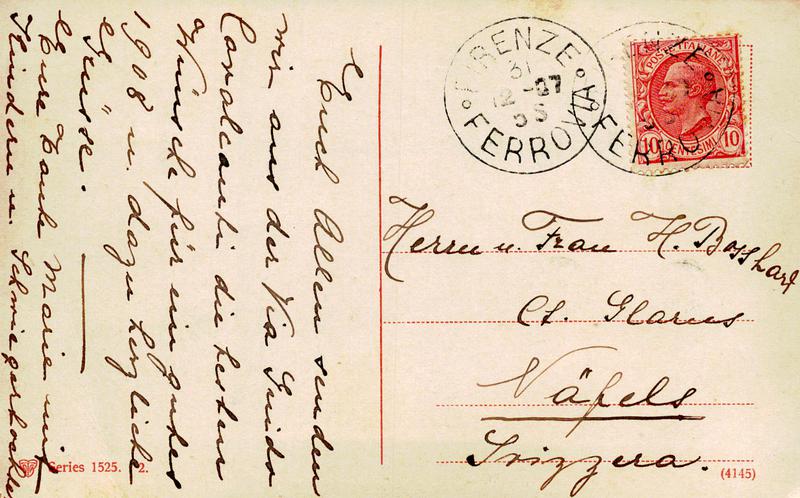 Euch Allen senden
wir aus der Via Guido
Cavalcanti die besten
Wünsche für ein gutes
1908 u. dazu herzliche
Grüsse.
Eure Tante Marie mit
Kindern u. Schwiegertochter
FIRENZE
FERROVIA
31
12-07
5S
FERROVIA
POSTE ITALIANE
10 CENTESIMI 10
Herrn u. Frau H. Bosshart
Ct. Glarus
Näfels
Svizzera.
Series 1525. 2.
(4145)